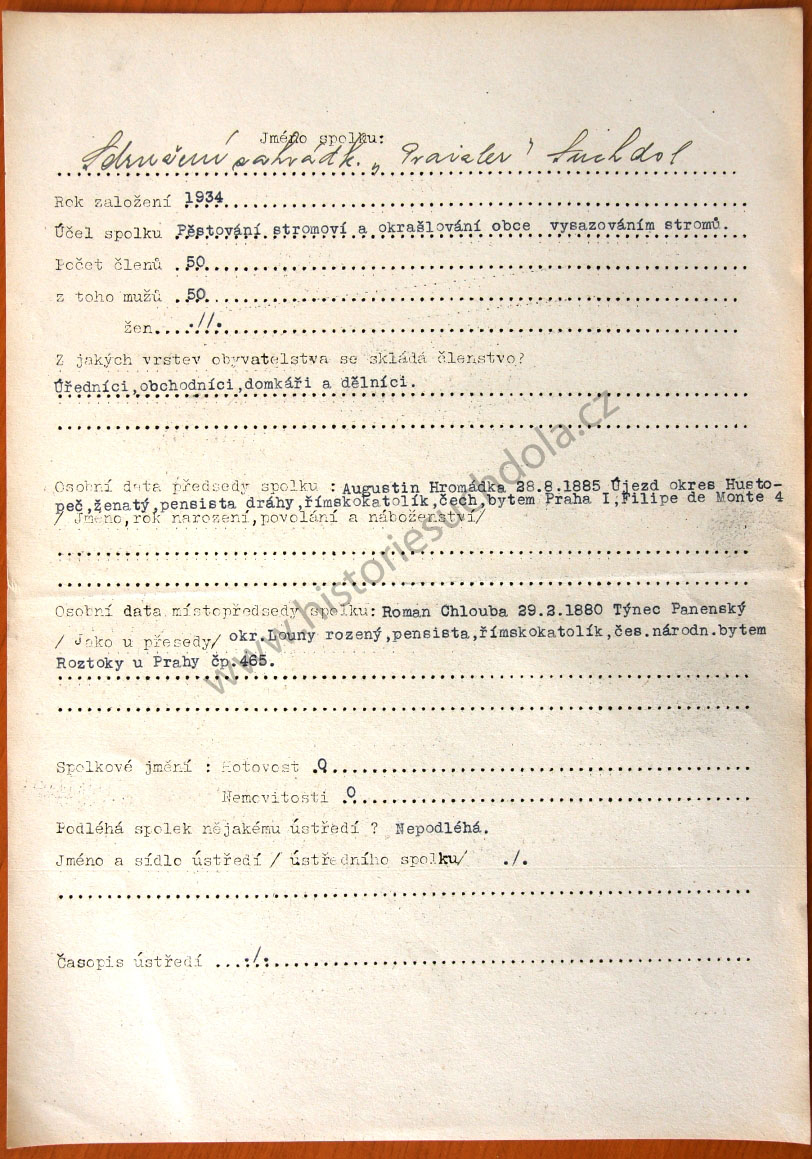 Jméno spolku:
Sdružení zahrádk. " " Suchdol
Rok založení 1934
Účel spolku Pěstování stromoví a okrašlování obce vysazováním stromů.
Počet členů 50
z toho mužů 50
žen .//.
Z jakých vrstev obyvatelstva se skládá členstvo?
Úředníci,obchodníci,domkáři a dělníci.
Osobní data předsedy spolku : Augustin Hromádka 28.8.1885 Újezd okres Husto-
peč,ženatý,pensista dráhy,římskokatolík,čech,bytem Praha I,Filipe de Monte 4
/ Jméno,rok narození,povolání a náboženství/
Osobní data místopředsedy spolku: Roman Chlouba 29.2.1880 Týnec Panenský
/ Jako u přesedy/ okr.Louny rozený,pensista,římskokatolík,čes.národn.bytem
Roztoky u Prahy čp.465.
Spolkové jmění : Hotovost 0
Nemovitosti 0
Podléhá spolek nějakému ústředí ? Nepodléhá.
Jméno a sídlo ústředí / ústředního spolku/ ./.
Časopis ústředí ./.
www.historiesuchdola.cz